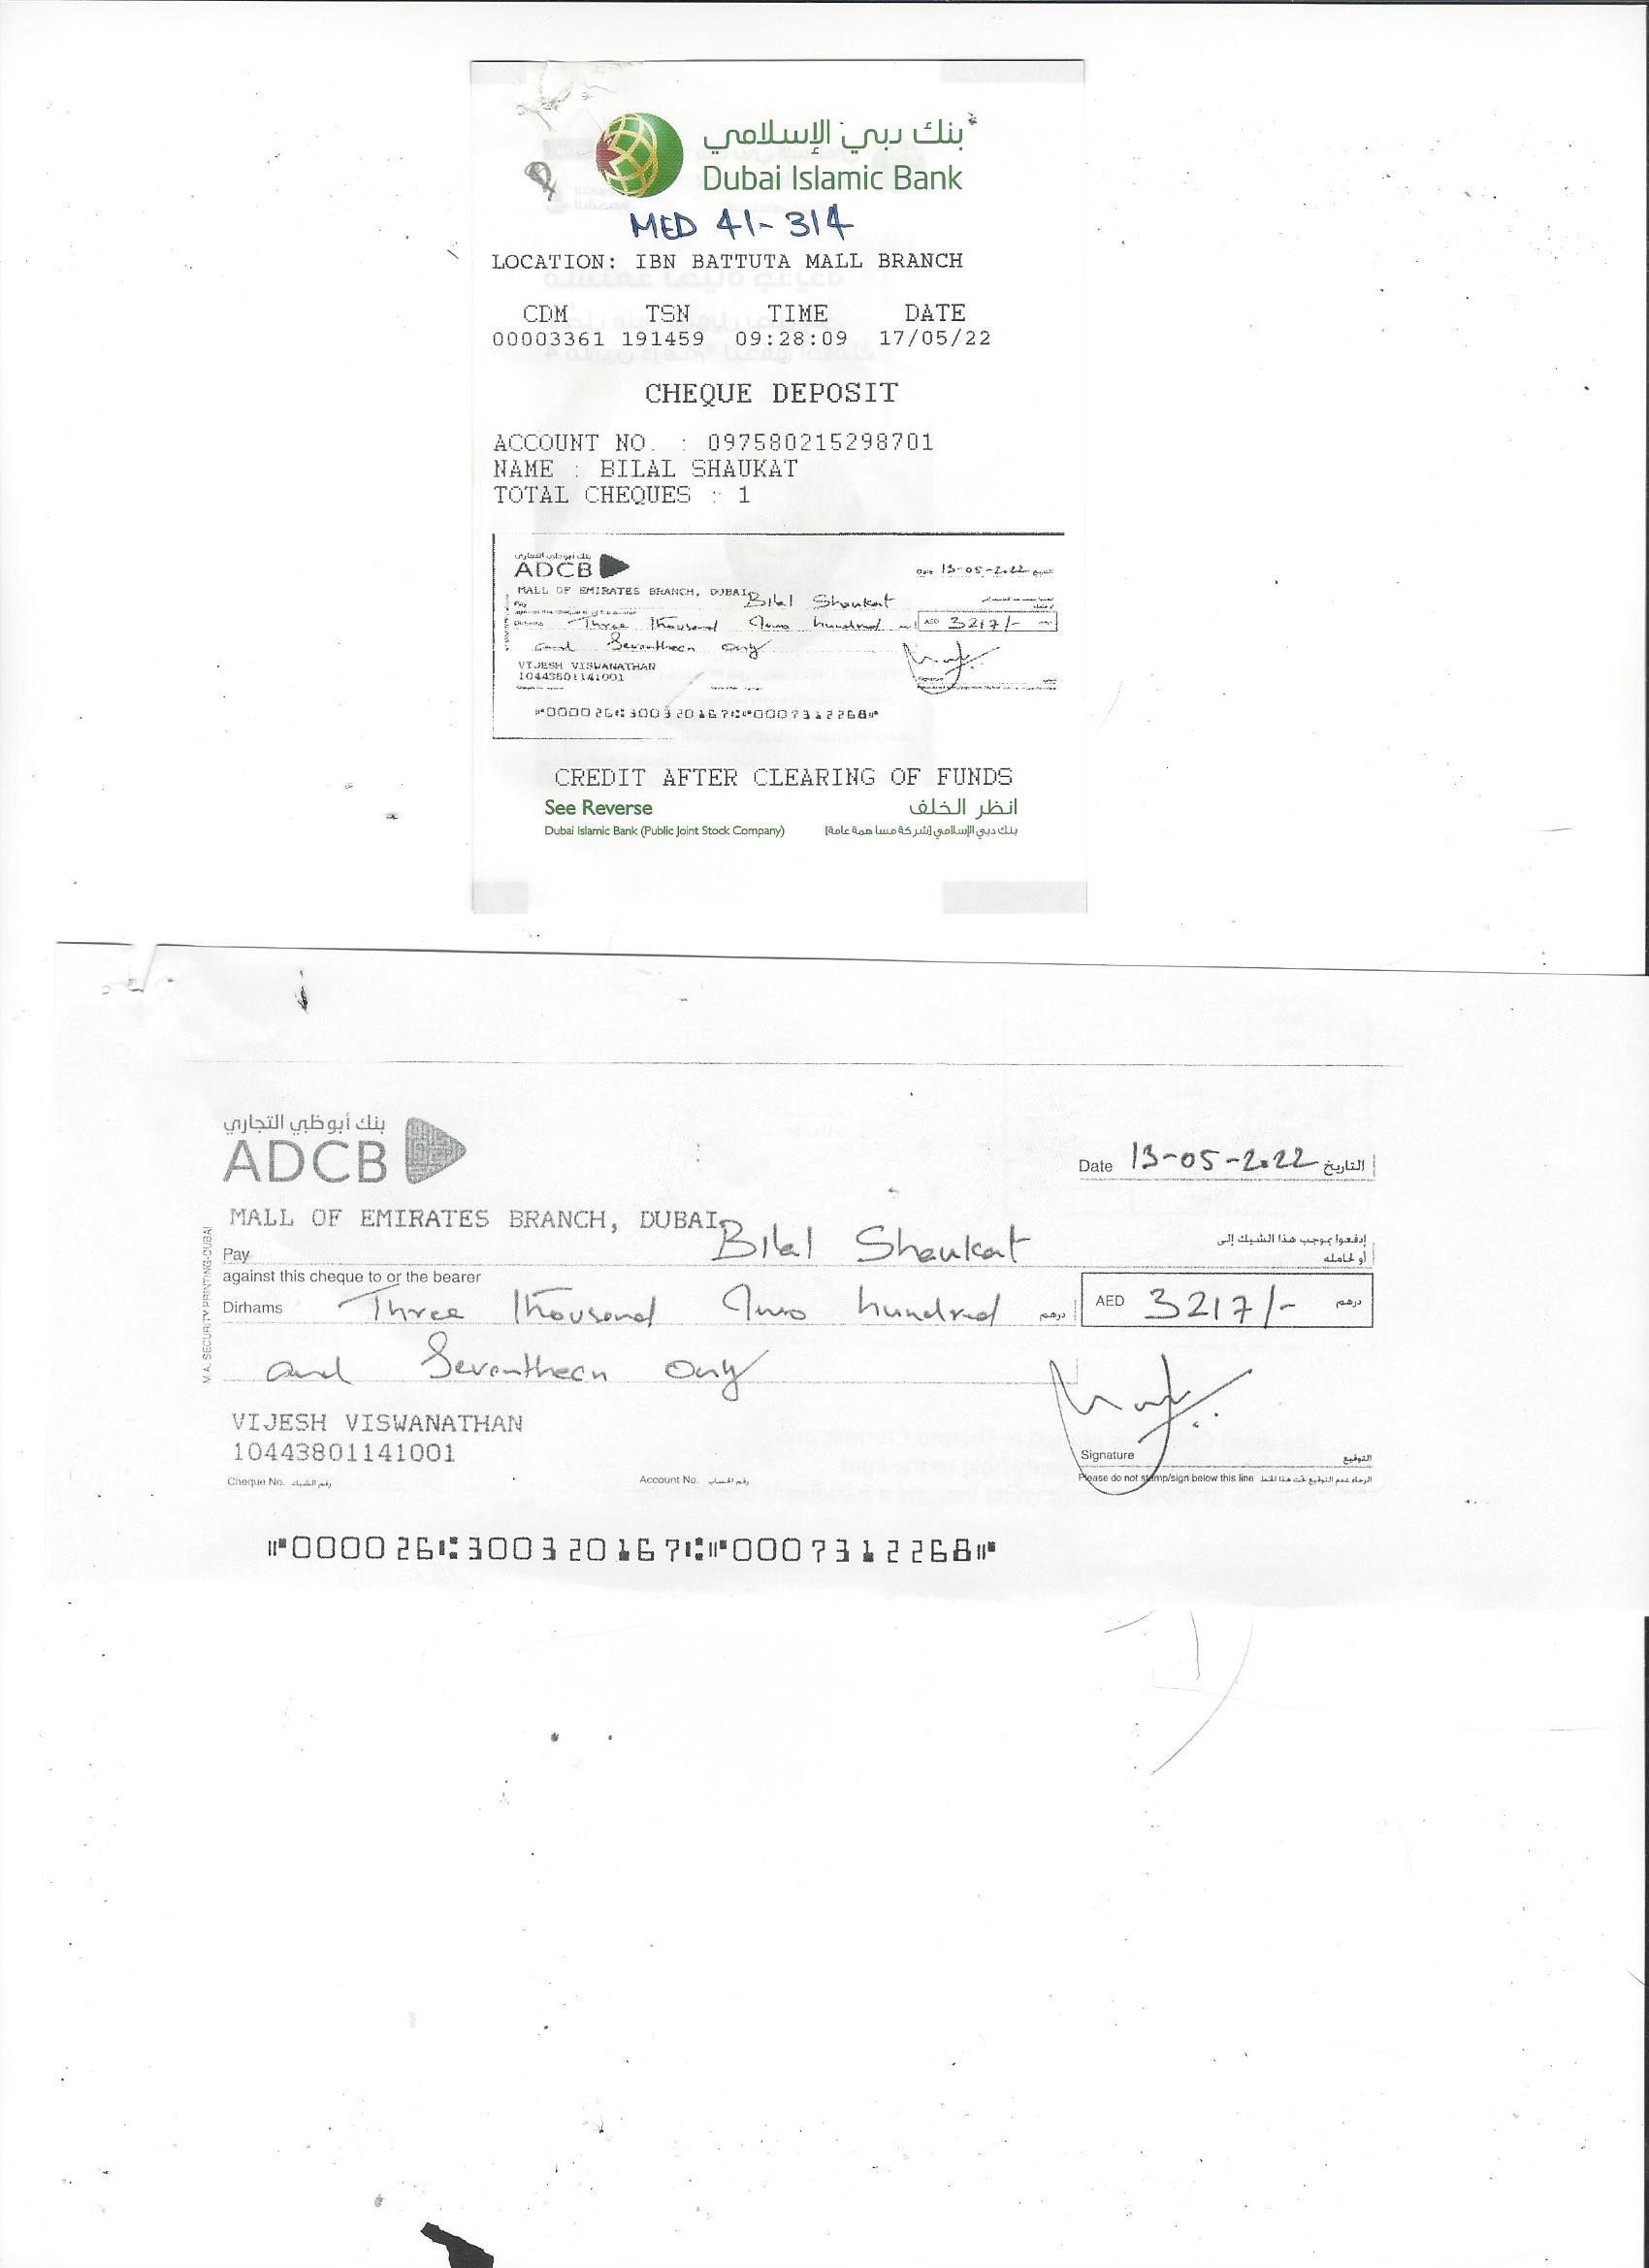 بنك دبي الإسلامي
Dubai Islamic Bank
MED 41-314
LOCATION: IBN BATTUTA MALL BRANCH
CDM TSN TIME DATE
00003361 191459 09:28:09 17/05/22
CHEQUE DEPOSIT
ACCOUNT NO. : 097580215298701
NAME : BILAL SHAUKAT
TOTAL CHEQUES : 1
بنك أبوظبي التجاري
ADCB
Date 13-05-2022 التاريخ
MALL OF EMIRATES BRANCH, DUBAI
Pay Bilal Shaukat
Dirhams Three Thousand Two hundred AED 3217/-
and Seventheen Only
VIJESH VISWANATHAN
10443801141001
⑈000026⑆300320167⑆⑈0007312268⑈
CREDIT AFTER CLEARING OF FUNDS
See Reverse انظر الخلف
Dubai Islamic Bank (Public Joint Stock Company) بنك دبي الإسلامي (شركة مساهمة عامة)
بنك أبوظبي التجاري
ADCB
Date 13-05-2022 التاريخ
MALL OF EMIRATES BRANCH, DUBAI
Pay Bilal Shaukat إدفعوا بموجب هذا الشيك إلى
أو لحامله
against this cheque to or the bearer
Dirhams Three Thousand Two hundred درهم AED 3217/- درهم
and Seventheen Only
M.A. SECURITY PRINTING-DUBAI
VIJESH VISWANATHAN
10443801141001
Signature التوقيع
Cheque No. رقم الشيك Account No. رقم الحساب Please do not stamp/sign below this line الرجاء عدم التوقيع تحت هذا الخط
⑈000026⑆300320167⑆⑈0007312268⑈